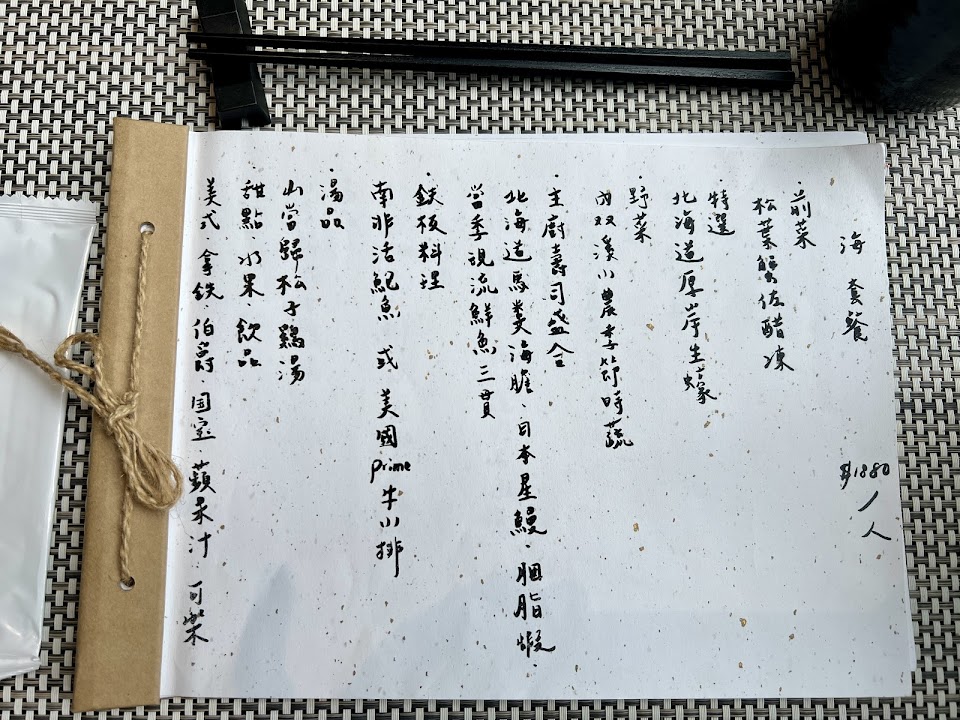 海套餐 $1880/人
·前菜
松葉蟹佐醋凍
·特選
北海道厚岸生蠔
·野菜
內双溪小農季節時蔬
·主廚壽司盛合
北海道馬糞海膽、日本星鰻、胭脂蝦、
當季現流鮮魚三貫
·鉄板料理
南非活鮑魚 或 美國prime牛小排
·湯品
山當歸松子鷄湯
甜點·水果 飲品
美式·拿鉄·伯爵·国宝·蘋果汁 可樂